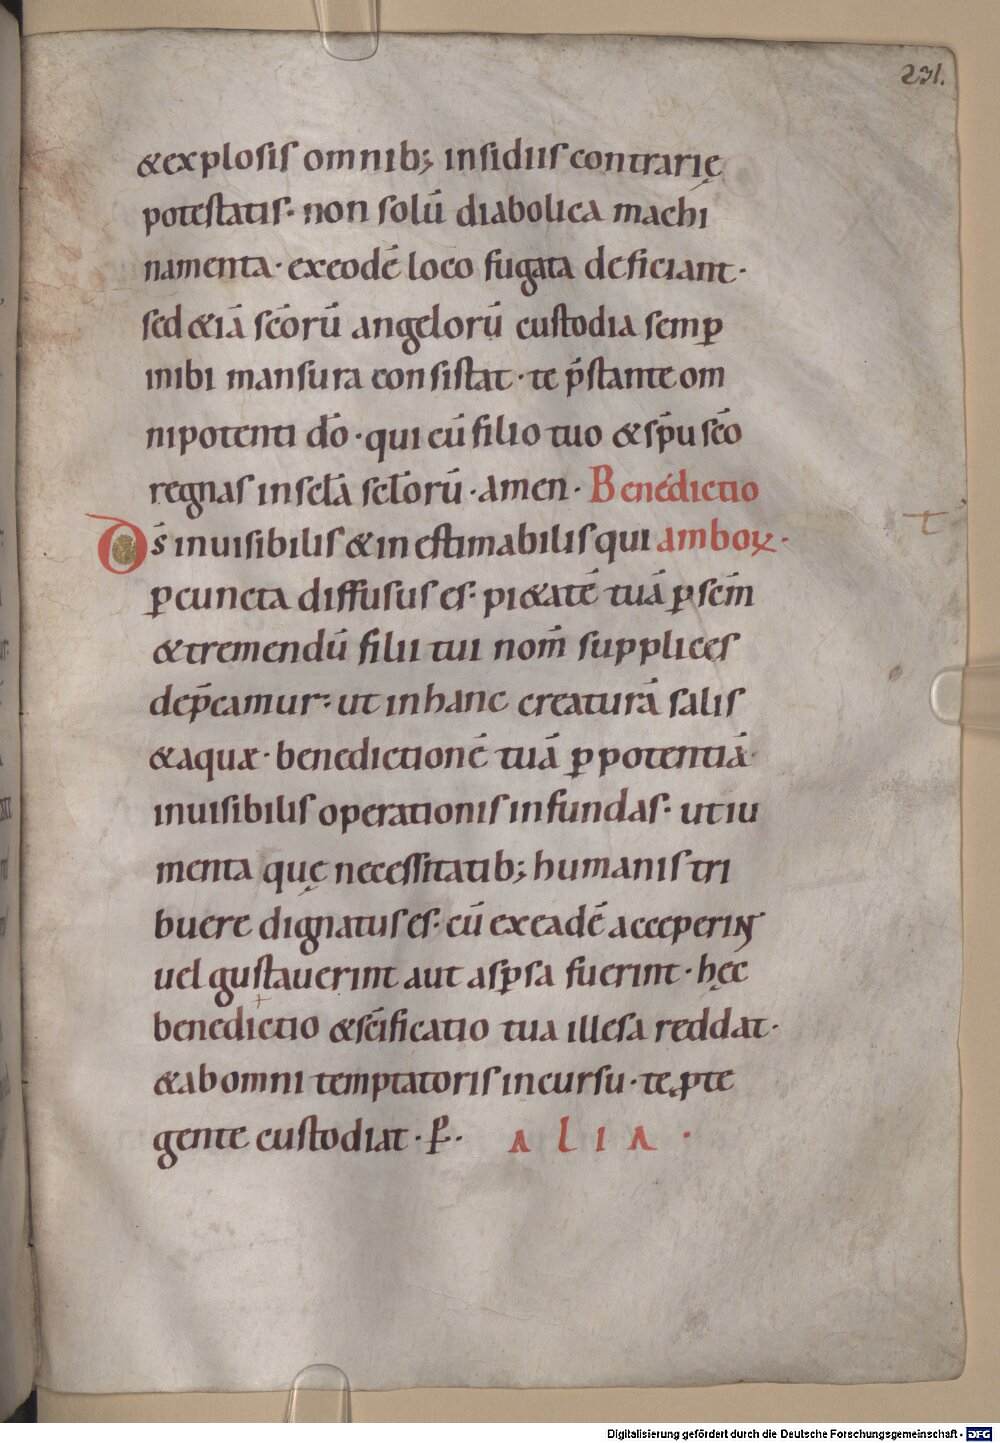 231.
&explosis omnib; insidiis contrarię
potestatis· non solū diabolica machi
namenta· exeodē loco fugata deficiant·
sed &iā scōrū angelorū custodia semꝑ
inibi mansura consistat· te p̄stante om
nipotenti dō· qui cū filio tuo & sp̄u scō
regnas in sclā sclōrū· amen· Benedictio
Ds̄ inuisibilis & inestimabilis qui amboꝝ·
ꝑ cuncta diffusus es· pi&atē tuā ꝑ scm̄
& tremendū filii tui nom̄ supplices
dep̄camur· ut in hanc creaturā salis
& aquæ· benedictionē tuā ꝑ potentiā
inuisibilis operationis infundas· ut iu
menta quę necessitatib; humanis tri
buere dignatus es· cū ex eadē acceperint
uel gustauerint aut asꝑsa fuerint· hęc
benedictio & scīficatio tua illesa reddat·
& ab omni temptatoris incursu· te ꝓte
gente custodiat· P̄· ALIA·
Digitalisierung gefördert durch die Deutsche Forschungsgemeinschaft - DFG